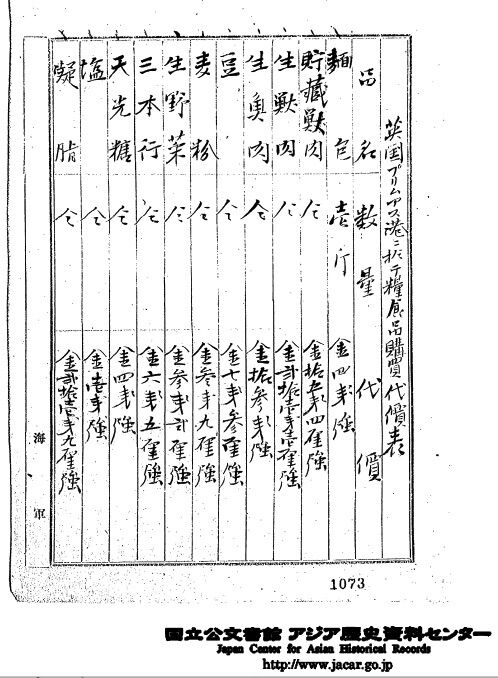 英国プリムアス港ニ於テ糧食品購買代價表
品名 数量 代價
麺包 壱斤 金四銭強
貯蔵獣肉 仝 金拾五銭四厘強
生獣肉 仝 金弐拾壱銭壱厘強
生魚肉 仝 金拾参銭強
豆 仝 金七銭参厘強
麦粉 仝 金参銭九厘強
生野菜 仝 金参銭弐厘強
三本行 仝 金六銭五厘強
天光糖 仝 金四銭強
塩 仝 金壱銭強
凝脂 仝 金弐拾壱銭九厘強
海軍
1073
国立公文書館 アジア歴史資料センター
Japan Center for Asian Historical Records
http://www.jacar.go.jp